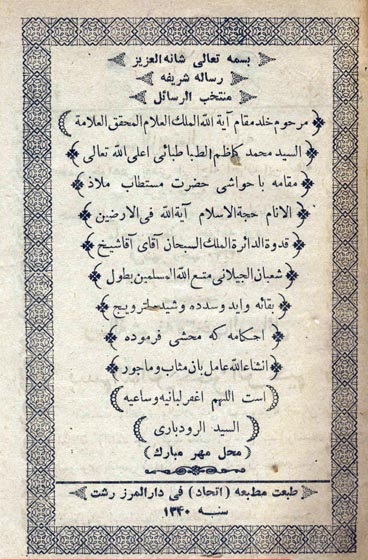 بسمه تعالی شانه العزیز
رساله شریفه
منتخب الرسائل
مرحوم خلد مقام آیة الله الملك العلام المحقق العلامة
السید محمد كاظم الطباطبائی اعلی الله تعالی
مقامه با حواشی حضرت مستطاب ملاذ
الانام حجة الاسلام آیة الله فی الارضین
قدوة الدائرة الملك السبحان آقای آقا شیخ
شعبان الجیلانی متع الله المسلمین بطول
بقائه واید وسدده وشید
احکامه که محشی فرموده
انشاءالله عامل بان مثاب وماجور
است اللهم اغفر لبانیه وساعیه
السید الرودباری
(محل مهر مبارك)
طبعت مطبعه (اتحاد) فی دار المرز رشت
سنه ۱۳۴۰